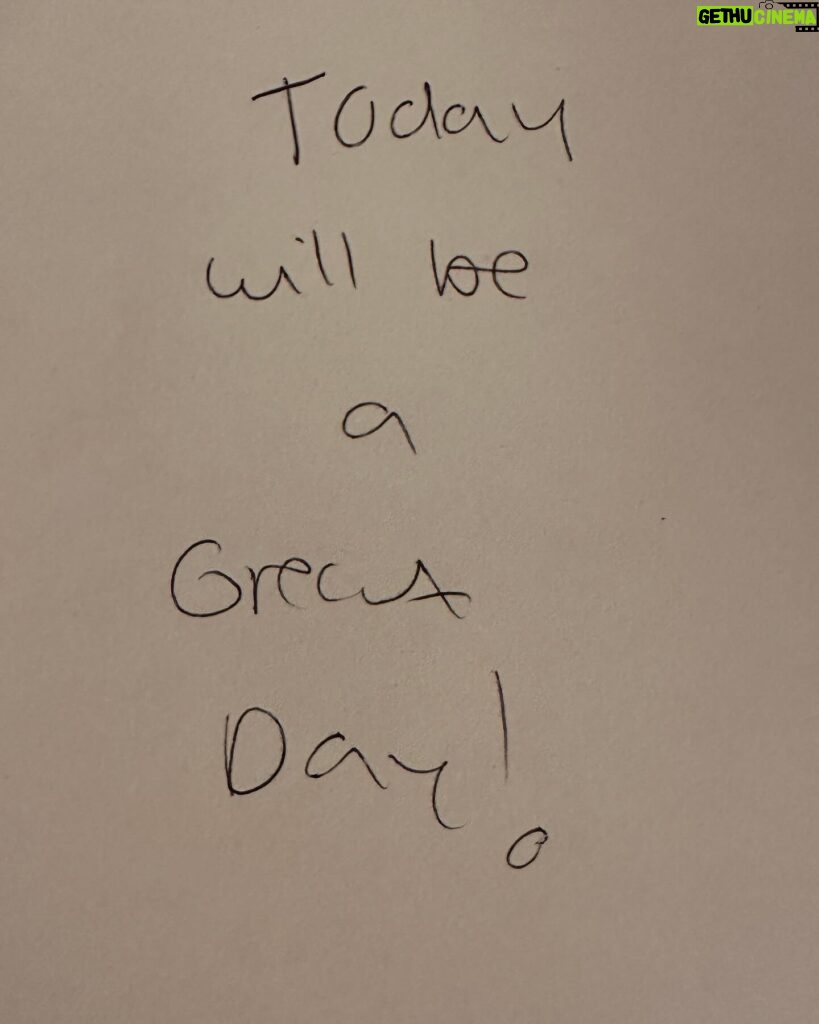 GETHUCINEMA
Today
will be
a
Great
Day!